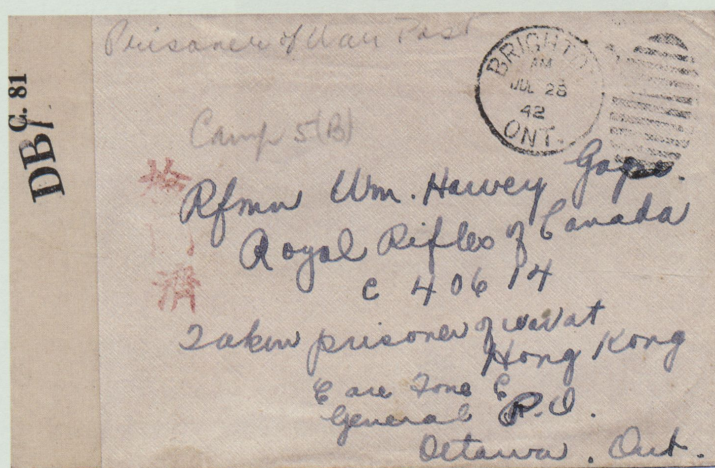 Prisoner of War Post
BRIGHTON
AM
JUL 28
42
ONT.
DB/C. 81
Camp 5(B)
檢閲濟
Rfmn Wm. Harvey
Royal Rifles of Canada
C 40614
Taken prisoner of war at
Hong Kong
Care Zone
General P.O.
Ottawa, Ont.